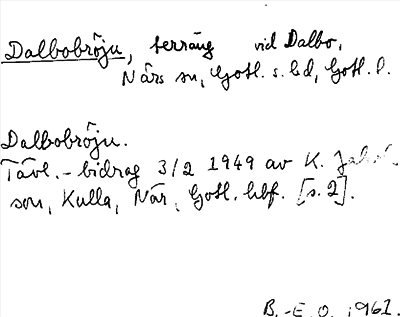 Dalbobröju, terräng vid Dalbo,
Närs sn, Gotl. s. hd, Gotl. l.
Dalbobröju.
Tävl.-bidrag 3/2 1949 av K. Jakob-
son, Kulla, När, Gotl. hbf. [s. 2].
B.-E. O. 1961.